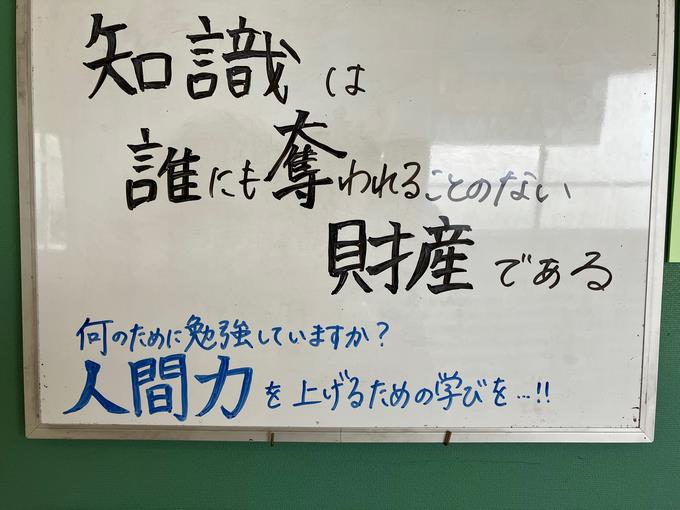 知識は
誰にも奪われることのない
財産である
何のために勉強していますか？
人間力を上げるための学びを…!!